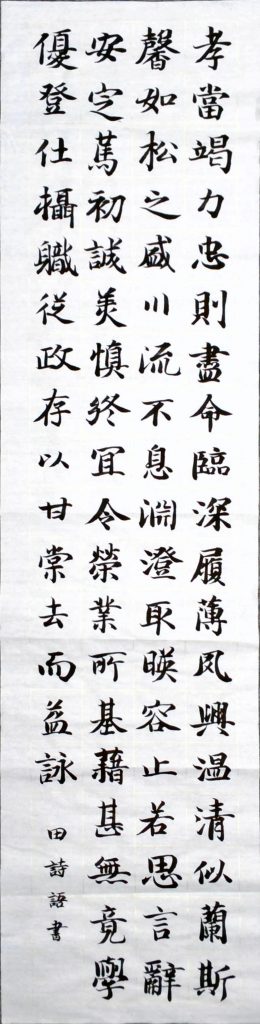 孝當竭力忠則盡命臨深履薄夙興温清似蘭斯
馨如松之盛川流不息淵澄取暎容止若思言辭
安定篤初誠美慎終宜令榮業所基藉甚無竟學
優登仕攝職從政存以甘棠去而益詠
田詩語書